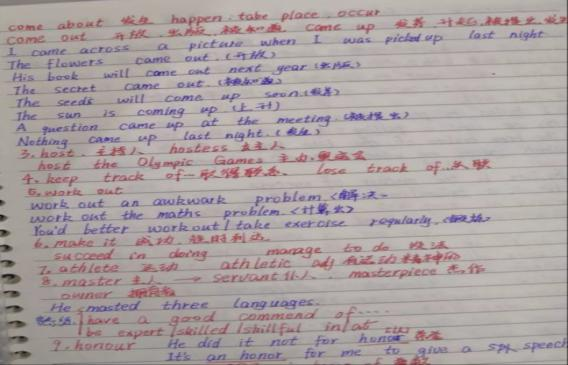 come about 发生 happen. take place. occur
come out 开放. 出版. 被知道 come up 发芽 升起. 被提出. 发生
I came across a picture when I was picked up last night
The flowers came out. (开放)
His book will come out next year (出版)
The secret came out. (被知道)
The seeds will come up soon. (发芽)
The sun is coming up (上升)
A question came up at the meeting. (被提出)
Nothing came up last night. (发生)
3. host. 主持人 hostess 女主人
host the Olympic Games 主办.奥运会
4. keep track of… 取得联系 lose track of… 失联
5. work out
work out an awkwark problem. <解决>
work out the maths problem. <计算出>
You'd better work out / take exercise regularly. <锻炼>
6. make it 成功. 按时到达.
succeed in doing manage to do 设法
7. athlete 运动 athletic adj 有运动精神的
8. master 主人 → servant 仆人. masterpiece 杰作
owner
He masted three languages.
have a good commend of….
be expert / skilled / skillful in/at
9. honour He did it not for honor
It's an honor for me to give a speech